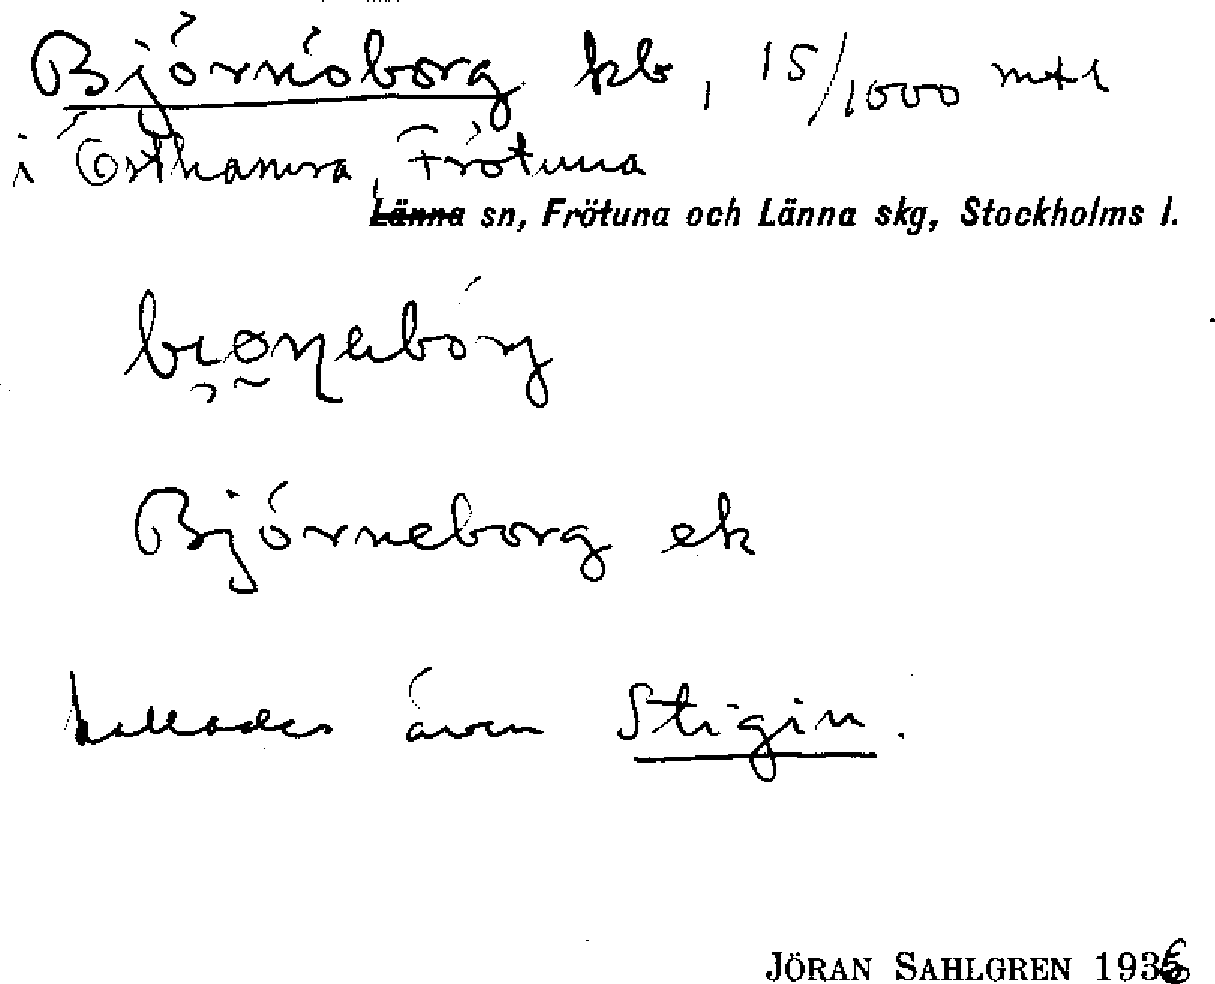 Björnöborg kb, 15/1000 mtl
i Östhamra, Frötuna
Länna sn, Frötuna och Länna skg, Stockholms l.
Björneborg ek
kallades även Stigin.
JÖRAN SAHLGREN 1936